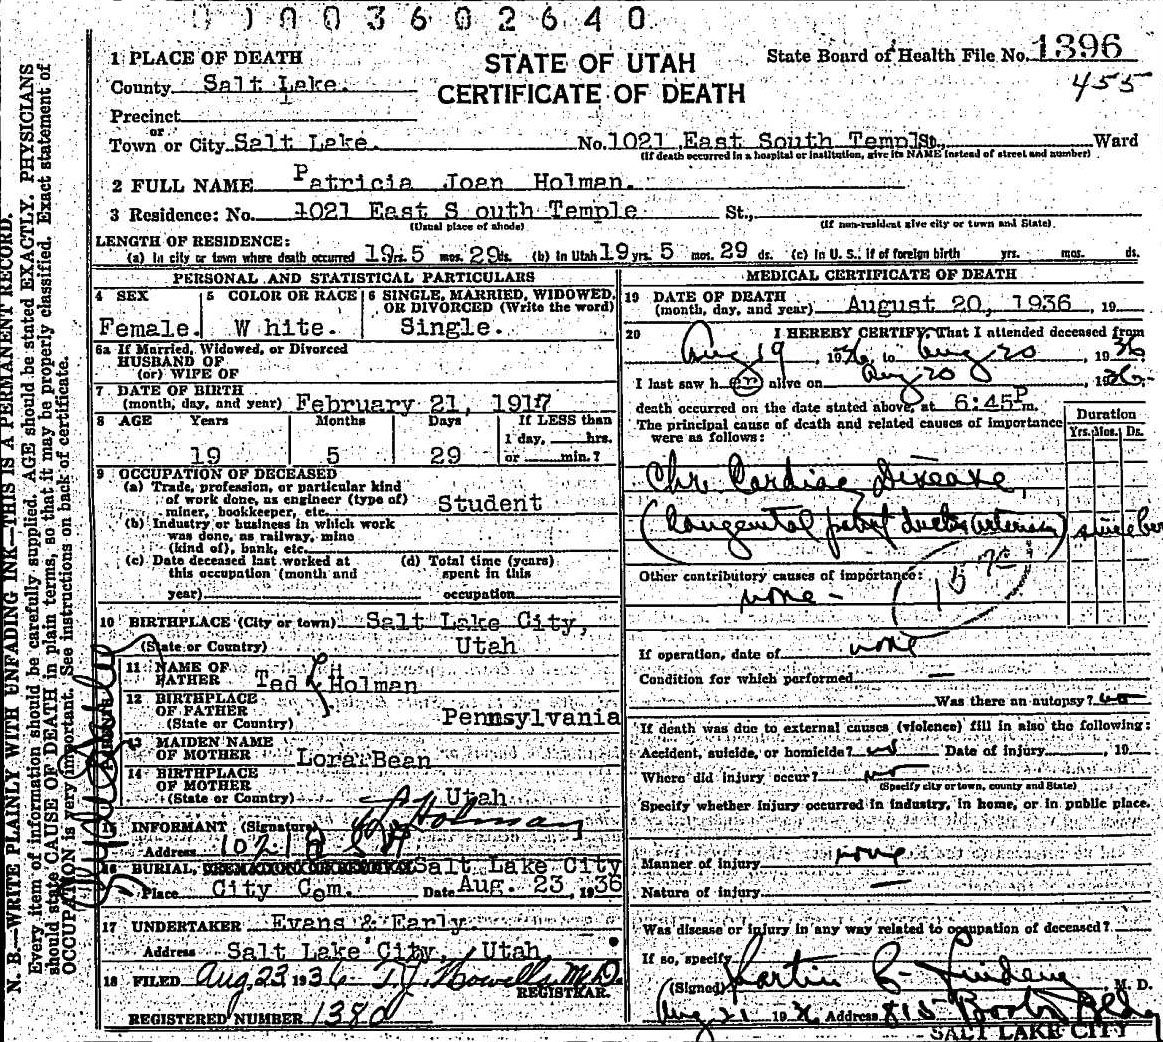 0003602640
1 PLACE OF DEATH
STATE OF UTAH
State Board of Health File No. 1396
County Salt Lake.
CERTIFICATE OF DEATH
455
Precinct
or
Town or City Salt Lake. No. 1021 East South Temple St., Ward
(If death occurred in a hospital or institution, give its NAME instead of street and number)
2 FULL NAME Patricia Joan Holman.
3 Residence: No. 1021 East S outh Temple St.,
(Usual place of abode) (If non-resident give city or town and State)
LENGTH OF RESIDENCE:
(a) In city or town where death occurred 19 yrs. 5 mos. 29 ds. (b) In Utah 19 yrs. 5 mos. 29 ds. (c) In U. S., if of foreign birth yrs. mos. ds.
PERSONAL AND STATISTICAL PARTICULARS
4 SEX 5 COLOR OR RACE 6 SINGLE, MARRIED, WIDOWED, OR DIVORCED (Write the word)
Female. W hite. Single.
6a If Married, Widowed, or Divorced
HUSBAND OF
(or) WIFE OF
7 DATE OF BIRTH
(month, day, and year) February 21, 1917
8 AGE Years Months Days If LESS than
1 day, hrs.
19 5 29 or min.?
9 OCCUPATION OF DECEASED
(a) Trade, profession, or particular kind
of work done, as engineer (type of)
miner, bookkeeper, etc. Student
(b) Industry or business in which work
was done, as railway, mine
(kind of), bank, etc.
(c) Date deceased last worked at
this occupation (month and
year)
(d) Total time (years)
spent in this
occupation
10 BIRTHPLACE (City or town) Salt Lake City,
(State or Country) Utah
11 NAME OF
FATHER Ted L H Holman
12 BIRTHPLACE
OF FATHER
(State or Country) Pennsylvania
13 MAIDEN NAME
OF MOTHER Lora Bean
14 BIRTHPLACE
OF MOTHER
(State or Country) Utah
15 INFORMANT (Signature) Holman
Address 1021 E
16 BURIAL, Salt Lake City
Place City Cem. Date Aug. 23, 1936
17 UNDERTAKER Evans & Early
Address Salt Lake City, Utah
18 FILED Aug. 23 1936 T.J. Howells M.D.
REGISTRAR.
REGISTERED NUMBER 1380
MEDICAL CERTIFICATE OF DEATH
19 DATE OF DEATH
(month, day, and year) August 20, 1936, 19
20 I HEREBY CERTIFY, That I attended deceased from
Aug 19, 1936, to Aug 20, 1936
I last saw her alive on Aug 20, 1936
death occurred on the date stated above, at 6:45 P m.
The principal cause of death and related causes of importance
were as follows:
Duration
Yrs. Mos. Ds.
Chr Cardiac Disease,
(Congenital patent ductus arteriosus) since
Other contributory causes of importance:
none -
If operation, date of none
Condition for which performed —
Was there an autopsy? no
If death was due to external causes (violence) fill in also the following:
Accident, suicide, or homicide? no Date of injury, 19
Where did injury occur? no
(Specify city or town, county and State)
Specify whether injury occurred in industry, in home, or in public place.
Manner of injury none
Nature of injury —
Was disease or injury in any way related to occupation of deceased?
If so, specify
(Signed) Martin C. Lindem M. D.
Aug 21 1936 Address 815 Boston Bldg
SALT LAKE CITY
N. B.—WRITE PLAINLY WITH UNFADING INK—THIS IS A PERMANENT RECORD.
Every item of information should be carefully supplied. AGE should be stated EXACTLY. PHYSICIANS
should state CAUSE OF DEATH in plain terms, so that it may be properly classified. Exact statement of
OCCUPATION is very important. See instructions on back of certificate.